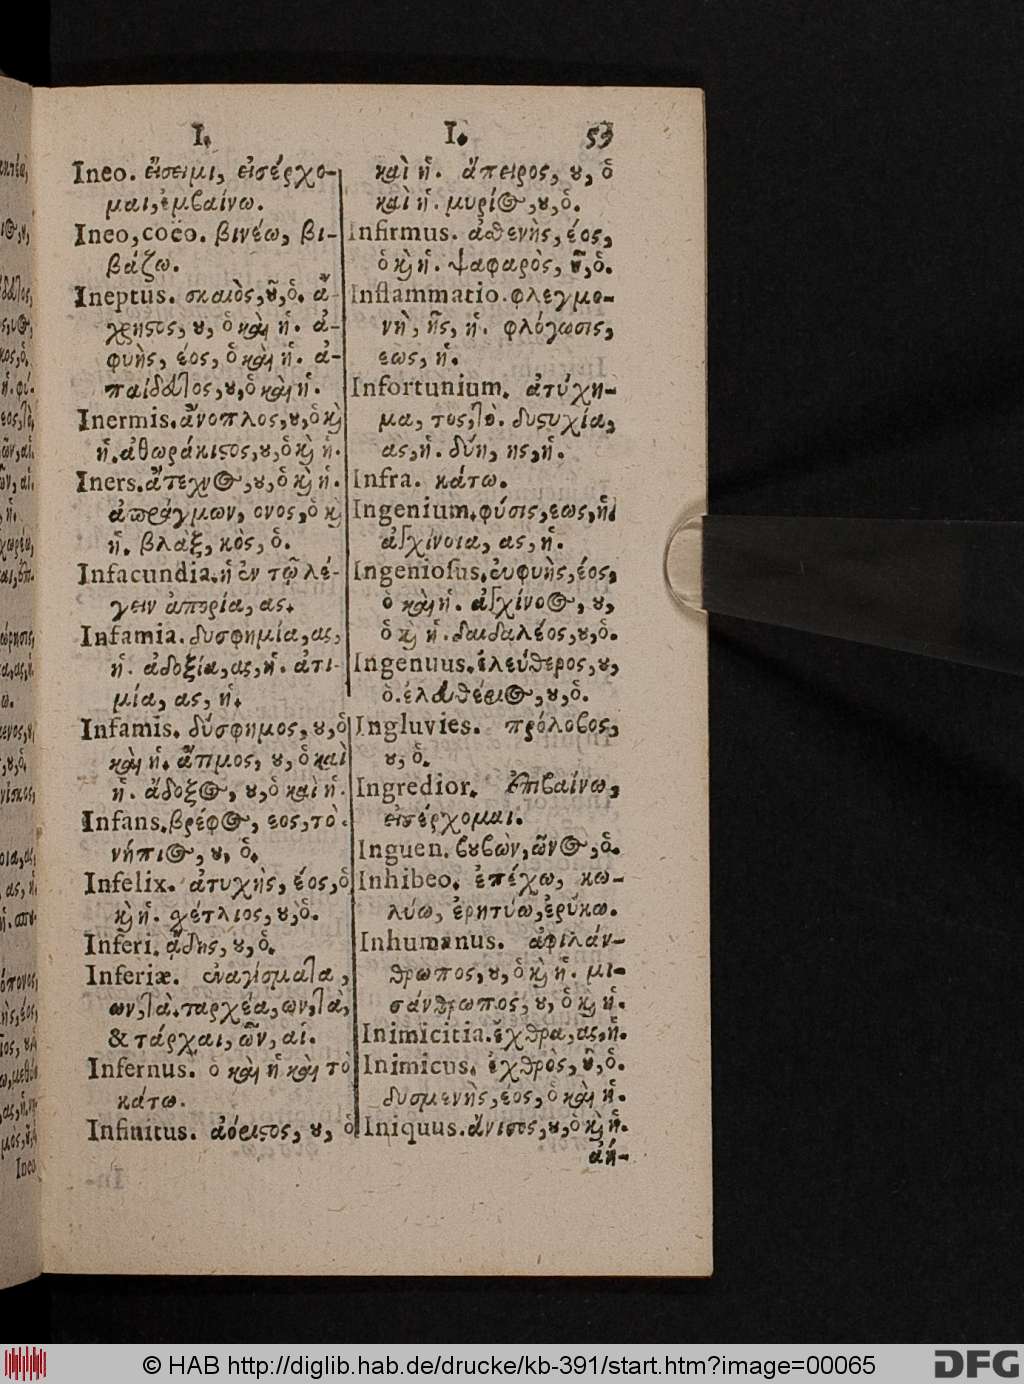 I.
Ineo. εἴσειμι, εἰσέρχο-
μαι, ἐμβαίνω.
Ineo, coeo. βινέω, βι-
βάζω.
Ineptus. σκαιὸς, ȣ͂, ὁ. ἄ-
χρηϛος, ȣ, ὁ καὶ ἡ. ἀ-
φυὴς, έος, ὁ καὶ ἡ. ἀ-
παίδευτος, ȣ, ὁ καὶ ἡ.
Inermis. ἄνοπλος, ȣ, ὁ κὶ
ἡ. ἀθωράκιϛος, ȣ, ὁ κὶ ἡ.
Iners. ἄτεχνος, ȣ, ὁ κὶ ἡ.
ἀπράγμων, ονος, ὁ κὶ
ἡ. βλὰξ, κὸς, ὁ.
Infacundia. ἡ ἐν τῷ λέ-
γειν ἀπορία, ας.
Infamia. δυσφημία, ας,
ἡ. ἀδοξία, ας, ἡ. ἀτι-
μία, ας, ἡ.
Infamis. δύσφημος, ȣ, ὁ
καὶ ἡ. ἄτιμος, ȣ, ὁ καὶ
ἡ. ἄδοξος, ȣ, ὁ καὶ ἡ.
Infans. βρέφος, εος, τὸ.
νήπιος, ȣ, ὁ.
Infelix. ἀτυχὴς, έος, ὁ
κὶ ἡ. σχέτλιος, ȣ, ὁ.
Inferi. ᾅδης, ȣ, ὁ.
Inferiæ. ἐναγίσματα,
ων, τὰ. ταρχέα, ων, τὰ,
& τάρχαι, ῶν, αἱ.
Infernus. ὁ καὶ ἡ καὶ τὸ
κάτω.
Infinitus. ἀόριϛος, ȣ, ὁ
I. 53
καὶ ἡ. ἄπειρος, ȣ, ὁ
καὶ ἡ. μυρίος, ȣ, ὁ.
Infirmus. ἀσθενὴς, έος,
ὁ κὶ ἡ. ψαφαρὸς, ȣ͂, ὁ.
Inflammatio. φλεγμο-
νὴ, ῆς, ἡ. φλόγωσις,
εως, ἡ.
Infortunium. ἀτύχη-
μα, τος, τὸ. δυϛυχία,
ας, ἡ. δύη, ης, ἡ.
Infra. κάτω.
Ingenium. φύσις, εως, ἡ
ἀγχίνοια, ας, ἡ.
Ingeniosus. εὐφυὴς, έος,
ὁ καὶ ἡ. ἀγχίνος, ȣ,
ὁ κὶ ἡ. δαιδαλέος, ȣ, ὁ.
Ingenuus. ἐλεύθερος, ȣ,
ὁ. ἐλευθέριος, ȣ, ὁ.
Ingluvies. πρόλοβος,
ȣ, ὁ.
Ingredior. ἐπιβαίνω,
εἰσέρχομαι.
Inguen. βȣβὼν, ῶνος, ὁ.
Inhibeo. ἐπέχω, κω-
λύω, ἐρητύω, ἐρύκω.
Inhumanus. ἀφιλάν-
θρωπος, ȣ, ὁ κὶ ἡ. μι-
σάνθρωπος, ȣ, ὁ κὶ ἡ.
Inimicitia. ἔχθρα, ας, ἡ.
Inimicus. ἐχθρὸς, ȣ͂, ὁ.
δυσμενὴς, έος, ὁ καὶ ἡ.
Iniquus. ἄνισος, ȣ, ὁ κὶ ἡ.
ἀή-
© HAB http://diglib.hab.de/drucke/kb-391/start.htm?image=00065
DFG